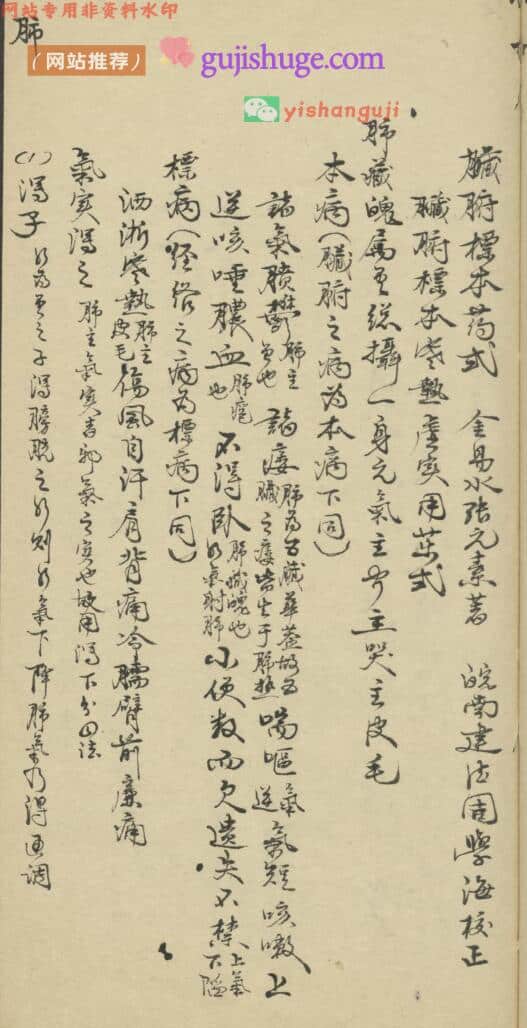 网站专用非资料水印
（网站推荐）
gujishuge.com
yishanguji
肺
臟腑標本药式　金易水張元素著　皖南建德周學海校正
臟腑標本寒熱虛實用药式
肺藏魄屬金總攝一身元氣主聞主哭主皮毛
本病（臟腑之病为本病下同）
諸氣膹鬱肺主氣也諸痿肺为五臟華蓋故五臟之痿皆生于肺熱喘嘔氣逆氣短咳嗽上
逆咳唾膿血肺疮也不得卧肺藏魄也水氣射肺小便数而欠遺失不禁上氣下陷
標病（經络之病为標病下同）
洒淅寒熱肺主皮毛傷風自汗肩背痛冷臑臂前廉痛
氣实瀉之肺主氣实者邪氣之实也故用瀉下分四法
(1)瀉子水为金之子瀉膀胱之水则水氣下降肺氣乃得通調